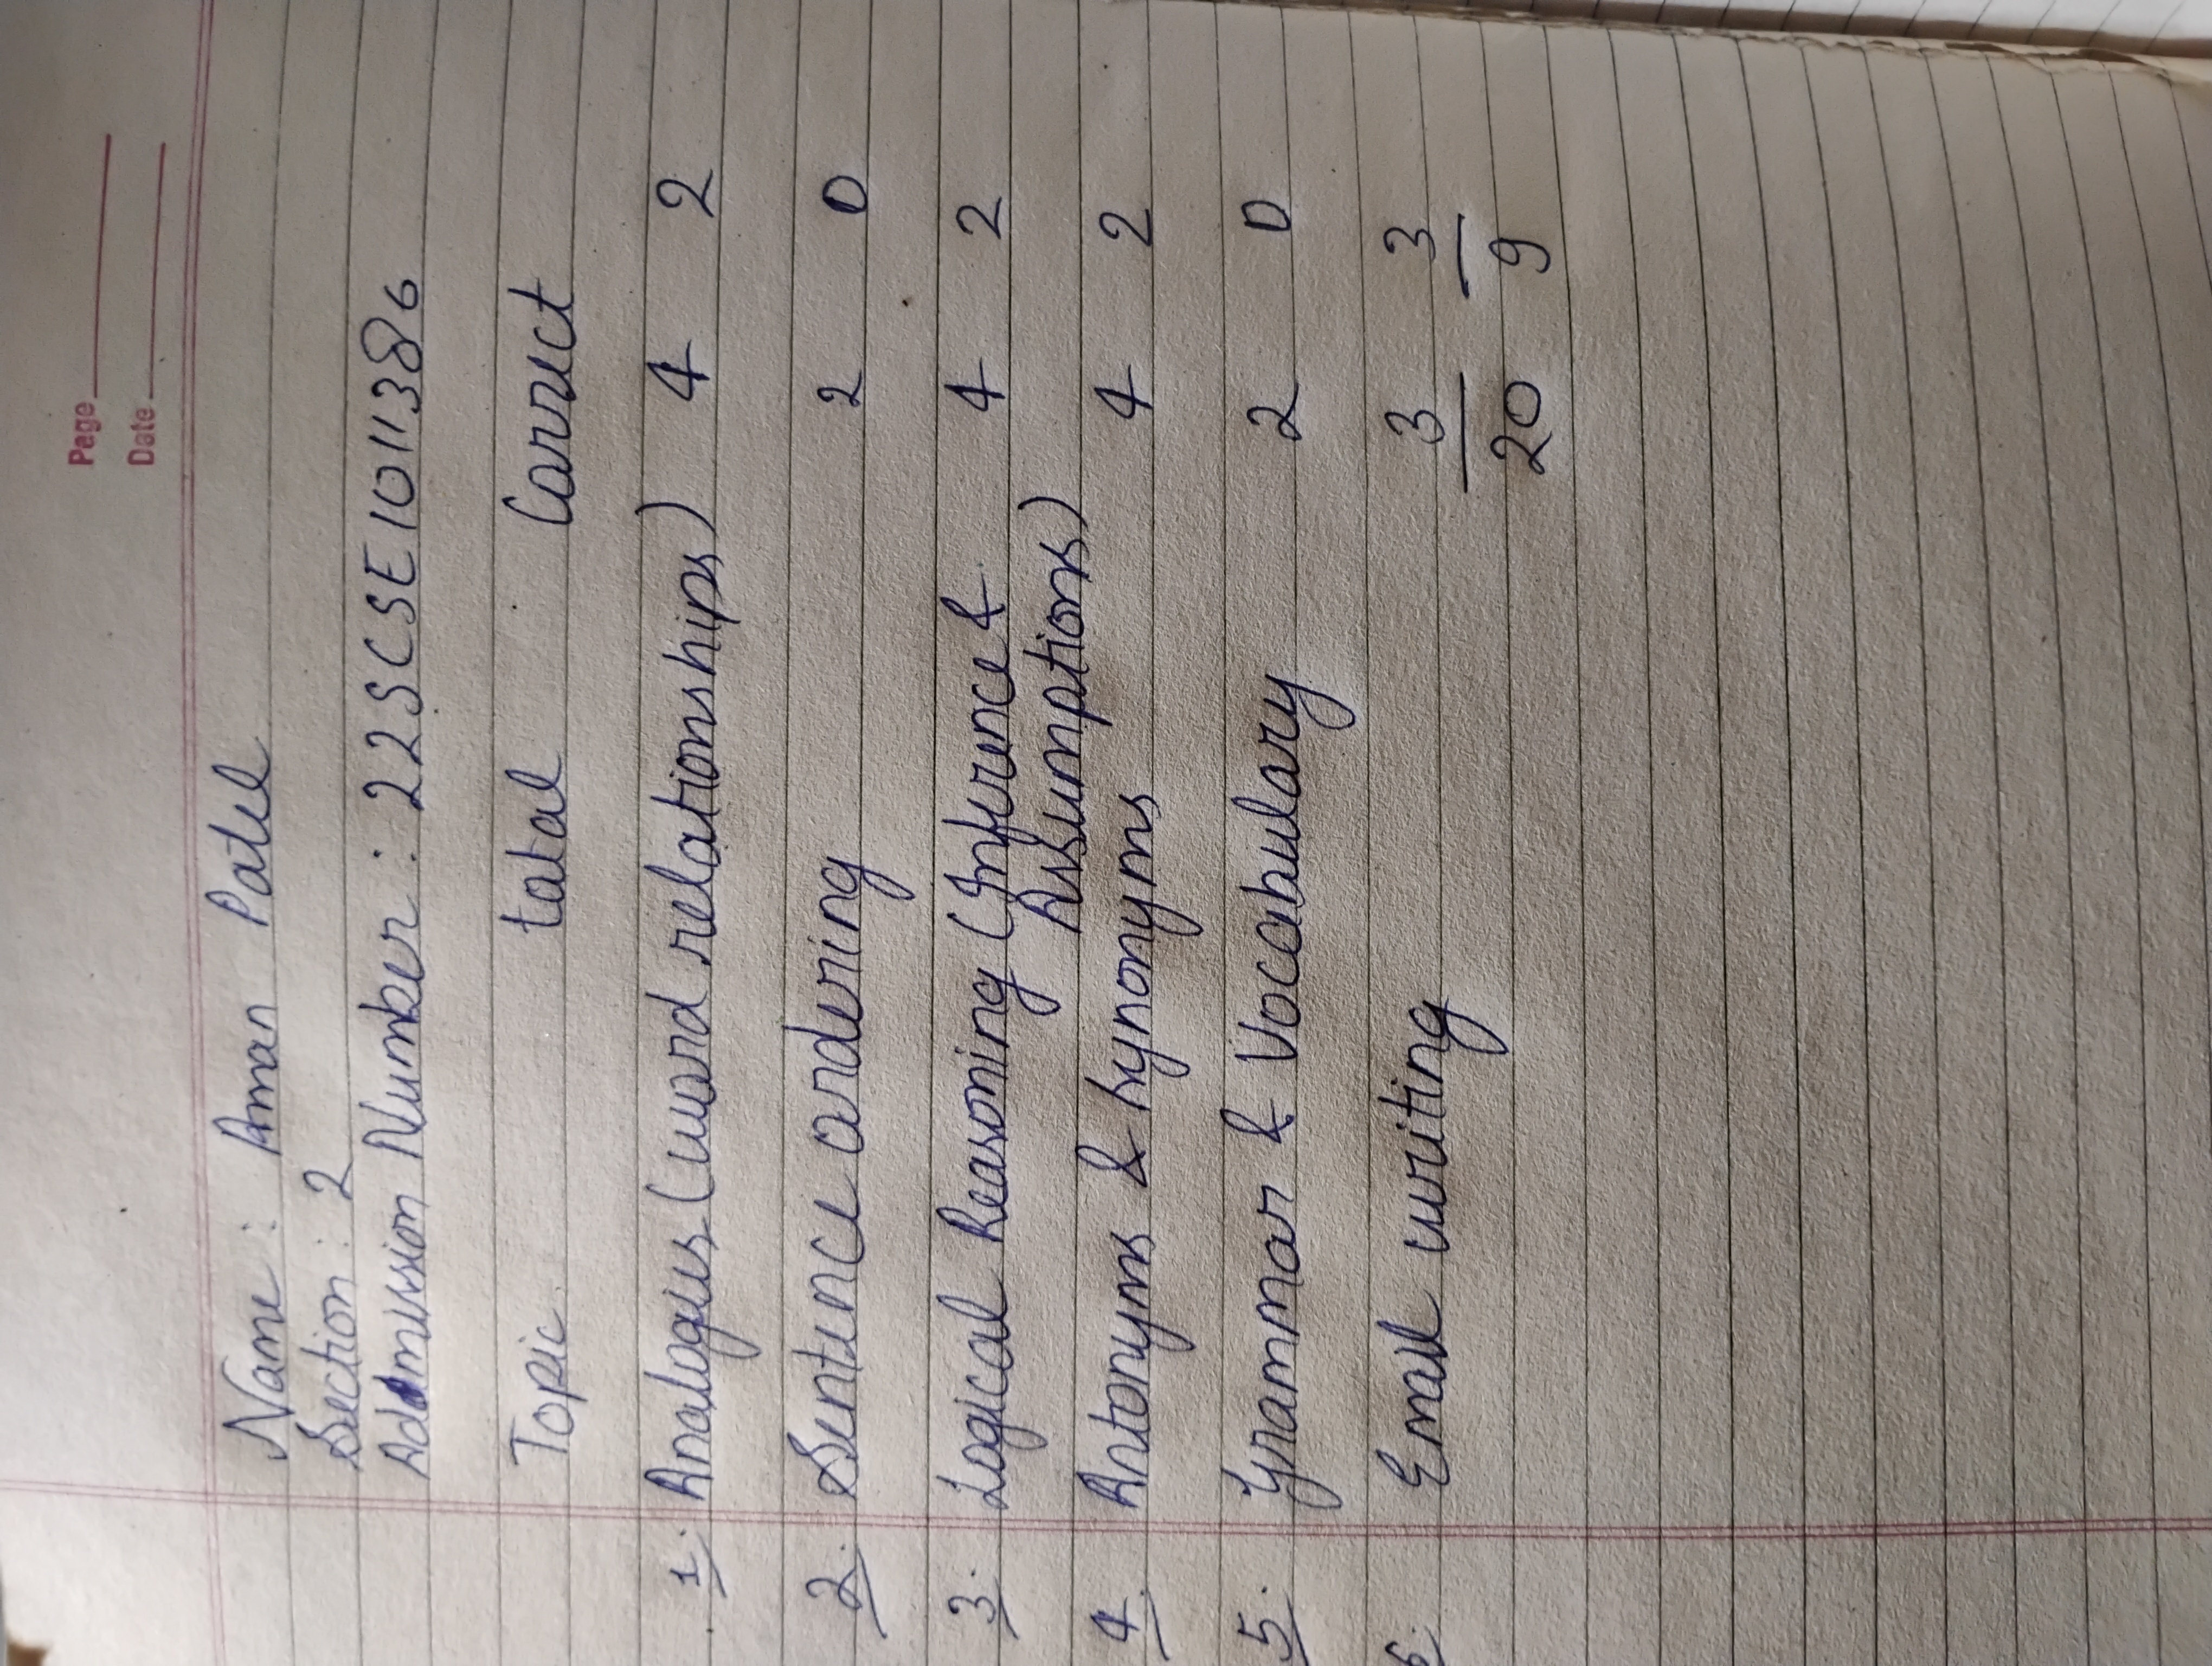 Page
Date
Name : Aman Patel
Section : 2
Addmission Number : 22SCSE1011386
Topic tatal Correct
1. Analogies (word relationships) 4 2
2. Sentence ordering 2 0
3. Logical Reasoning (Inference & 4 2
Assumptions)
4. Antonyms & Synonyms 4 2
5. Grammar & Vocabulary 2 0
6. Email writing 3 3
20 9